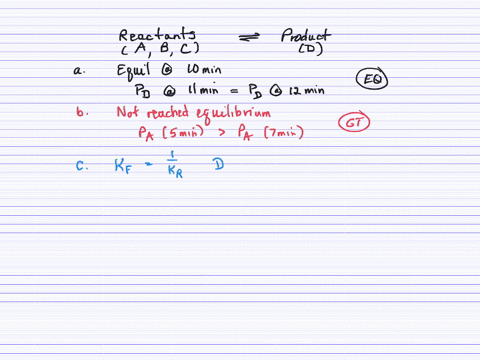 Reactants ⇌ Product
(A, B, C) (D)
a. Equil @ 10min
P_D @ 11min = P_D @ 12min (EQ)
b. Not reached equilibrium
P_A (5min) > P_A (7min) (GT)
c. K_F = 1/K_R D